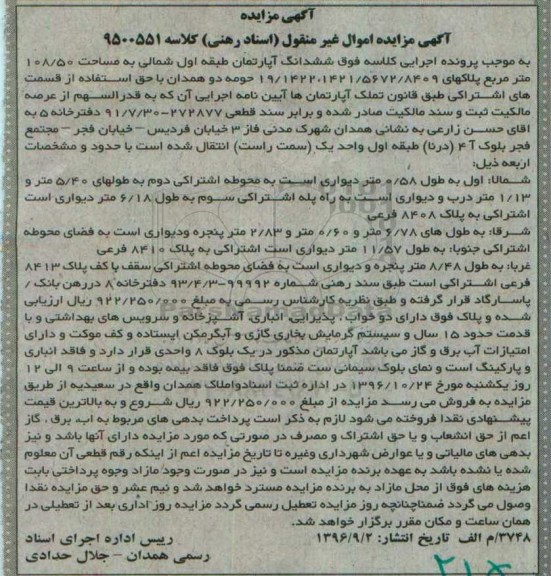 آگهی مزایده
آگهی مزایده اموال غیر منقول (اسناد رهنی) کلاسه ۹۵۰۰۵۵۱
به موجب پرونده اجرایی کلاسه فوق ششدانگ آپارتمان طبقه اول شمالی به مساحت ۱۰۸/۵۰
متر مربع پلاکهای ۱۹/۱۴۲۲،۱۴۲۱/۵۶۷۲/۸۴۰۹ حومه دو همدان با حق استفاده از قسمت
های اشتراکی طبق قانون تملک آپارتمان ها آیین نامه اجرایی آن که به قدرالسهم از عرصه
مالکیت ثبت و سند مالکیت صادر شده و برابر سند قطعی ۲۷۲۸۷۷-۹۱/۷/۳۰ دفترخانه ۵ به
اقای حسن زارعی به نشانی همدان شهرک مدنی فاز ۳ خیابان فردیس – خیابان فجر – مجتمع
فجر بلوک ۴ آ (درنا) طبقه اول واحد یک (سمت راست) انتقال شده است با حدود و مشخصات
اربعه ذیل:
شمالا: اول به طول ۰/۵۸ متر دیواری است به محوطه اشتراکی دوم به طولهای ۵/۴۰ متر و
۱/۱۳ متر درب و دیواری است به راه پله اشتراکی سوم به طول ۶/۱۸ متر دیواری است
اشتراکی به پلاک ۸۴۰۸ فرعی
شرقا: به طول های ۶/۷۸ متر و ۰/۶۰ متر و ۲/۸۳ متر پنجره ودیواری است به فضای محوطه
اشتراکی جنوبا: به طول ۱۱/۵۷ متر دیواری است اشتراکی به پلاک ۸۴۱۰ فرعی
غربا: به طول ۸/۴۸ متر پنجره و دیواری است به فضای محوطه اشتراکی سقف با کف پلاک ۸۴۱۳
فرعی اشتراکی است طبق سند رهنی شماره ۹۹۹۹۲-۹۳/۴/۳ دفترخانه ۸ دررهن بانک /
پاسارگاد قرار گرفته و طبق نظریه کارشناس رسمی به مبلغ ۹۲۲/۲۵۰/۰۰۰ ریال ارزیابی
شده و پلاک فوق دارای دو خواب ، پذیرایی انباری آشپزخانه و سرویس های بهداشتی و با
قدمت حدود ۱۵ سال و سیستم گرمایش بخاری گازی و آبگرمکن ایستاده و کف موکت و دارای
امتیازات آب برق و گاز می باشد آپارتمان مذکور در یک بلوک ۸ واحدی قرار دارد و فاقد انباری
و پارکینگ است و نمای بلوک سیمانی ست ضمنا پلاک فوق فاقد بیمه بوده و از ساعت ۹ الی ۱۲
روز یکشنبه مورخ ۱۳۹۶/۱۰/۲۴ در اداره ثبت اسنادواملاک همدان واقع در سعیدیه از طریق
مزایده به فروش می رسد مزایده از مبلغ ۹۲۲/۲۵۰/۰۰۰ ریال شروع و به بالاترین قیمت
پیشنهادی نقدا فروخته می شود لازم به ذکر است پرداخت بدهی های مربوط به اب، برق ، گاز
اعم از حق انشعاب و یا حق اشتراک و مصرف در صورتی که مورد مزایده دارای آنها باشد و نیز
بدهی های مالیاتی و یا عوارض شهرداری وغیره تا تاریخ مزایده اعم از اینکه رقم قطعی آن معلوم
شده یا نشده باشد به عهده برنده مزایده است و نیز در صورت وجود مازاد وجوه پرداختی بابت
هزینه های فوق از محل مازاد به برنده مزایده مسترد خواهد شد و نیم عشر و حق مزایده نقدا
وصول می گردد ضمناچنانچه روز مزایده تعطیل رسمی گردد مزایده روز اداری بعد از تعطیلی در
همان ساعت و مکان مقرر برگزار خواهد شد.
۳۷۴۸/م الف تاریخ انتشار: ۱۳۹۶/۹/۲
رییس اداره اجرای اسناد
رسمی همدان – جلال حدادی